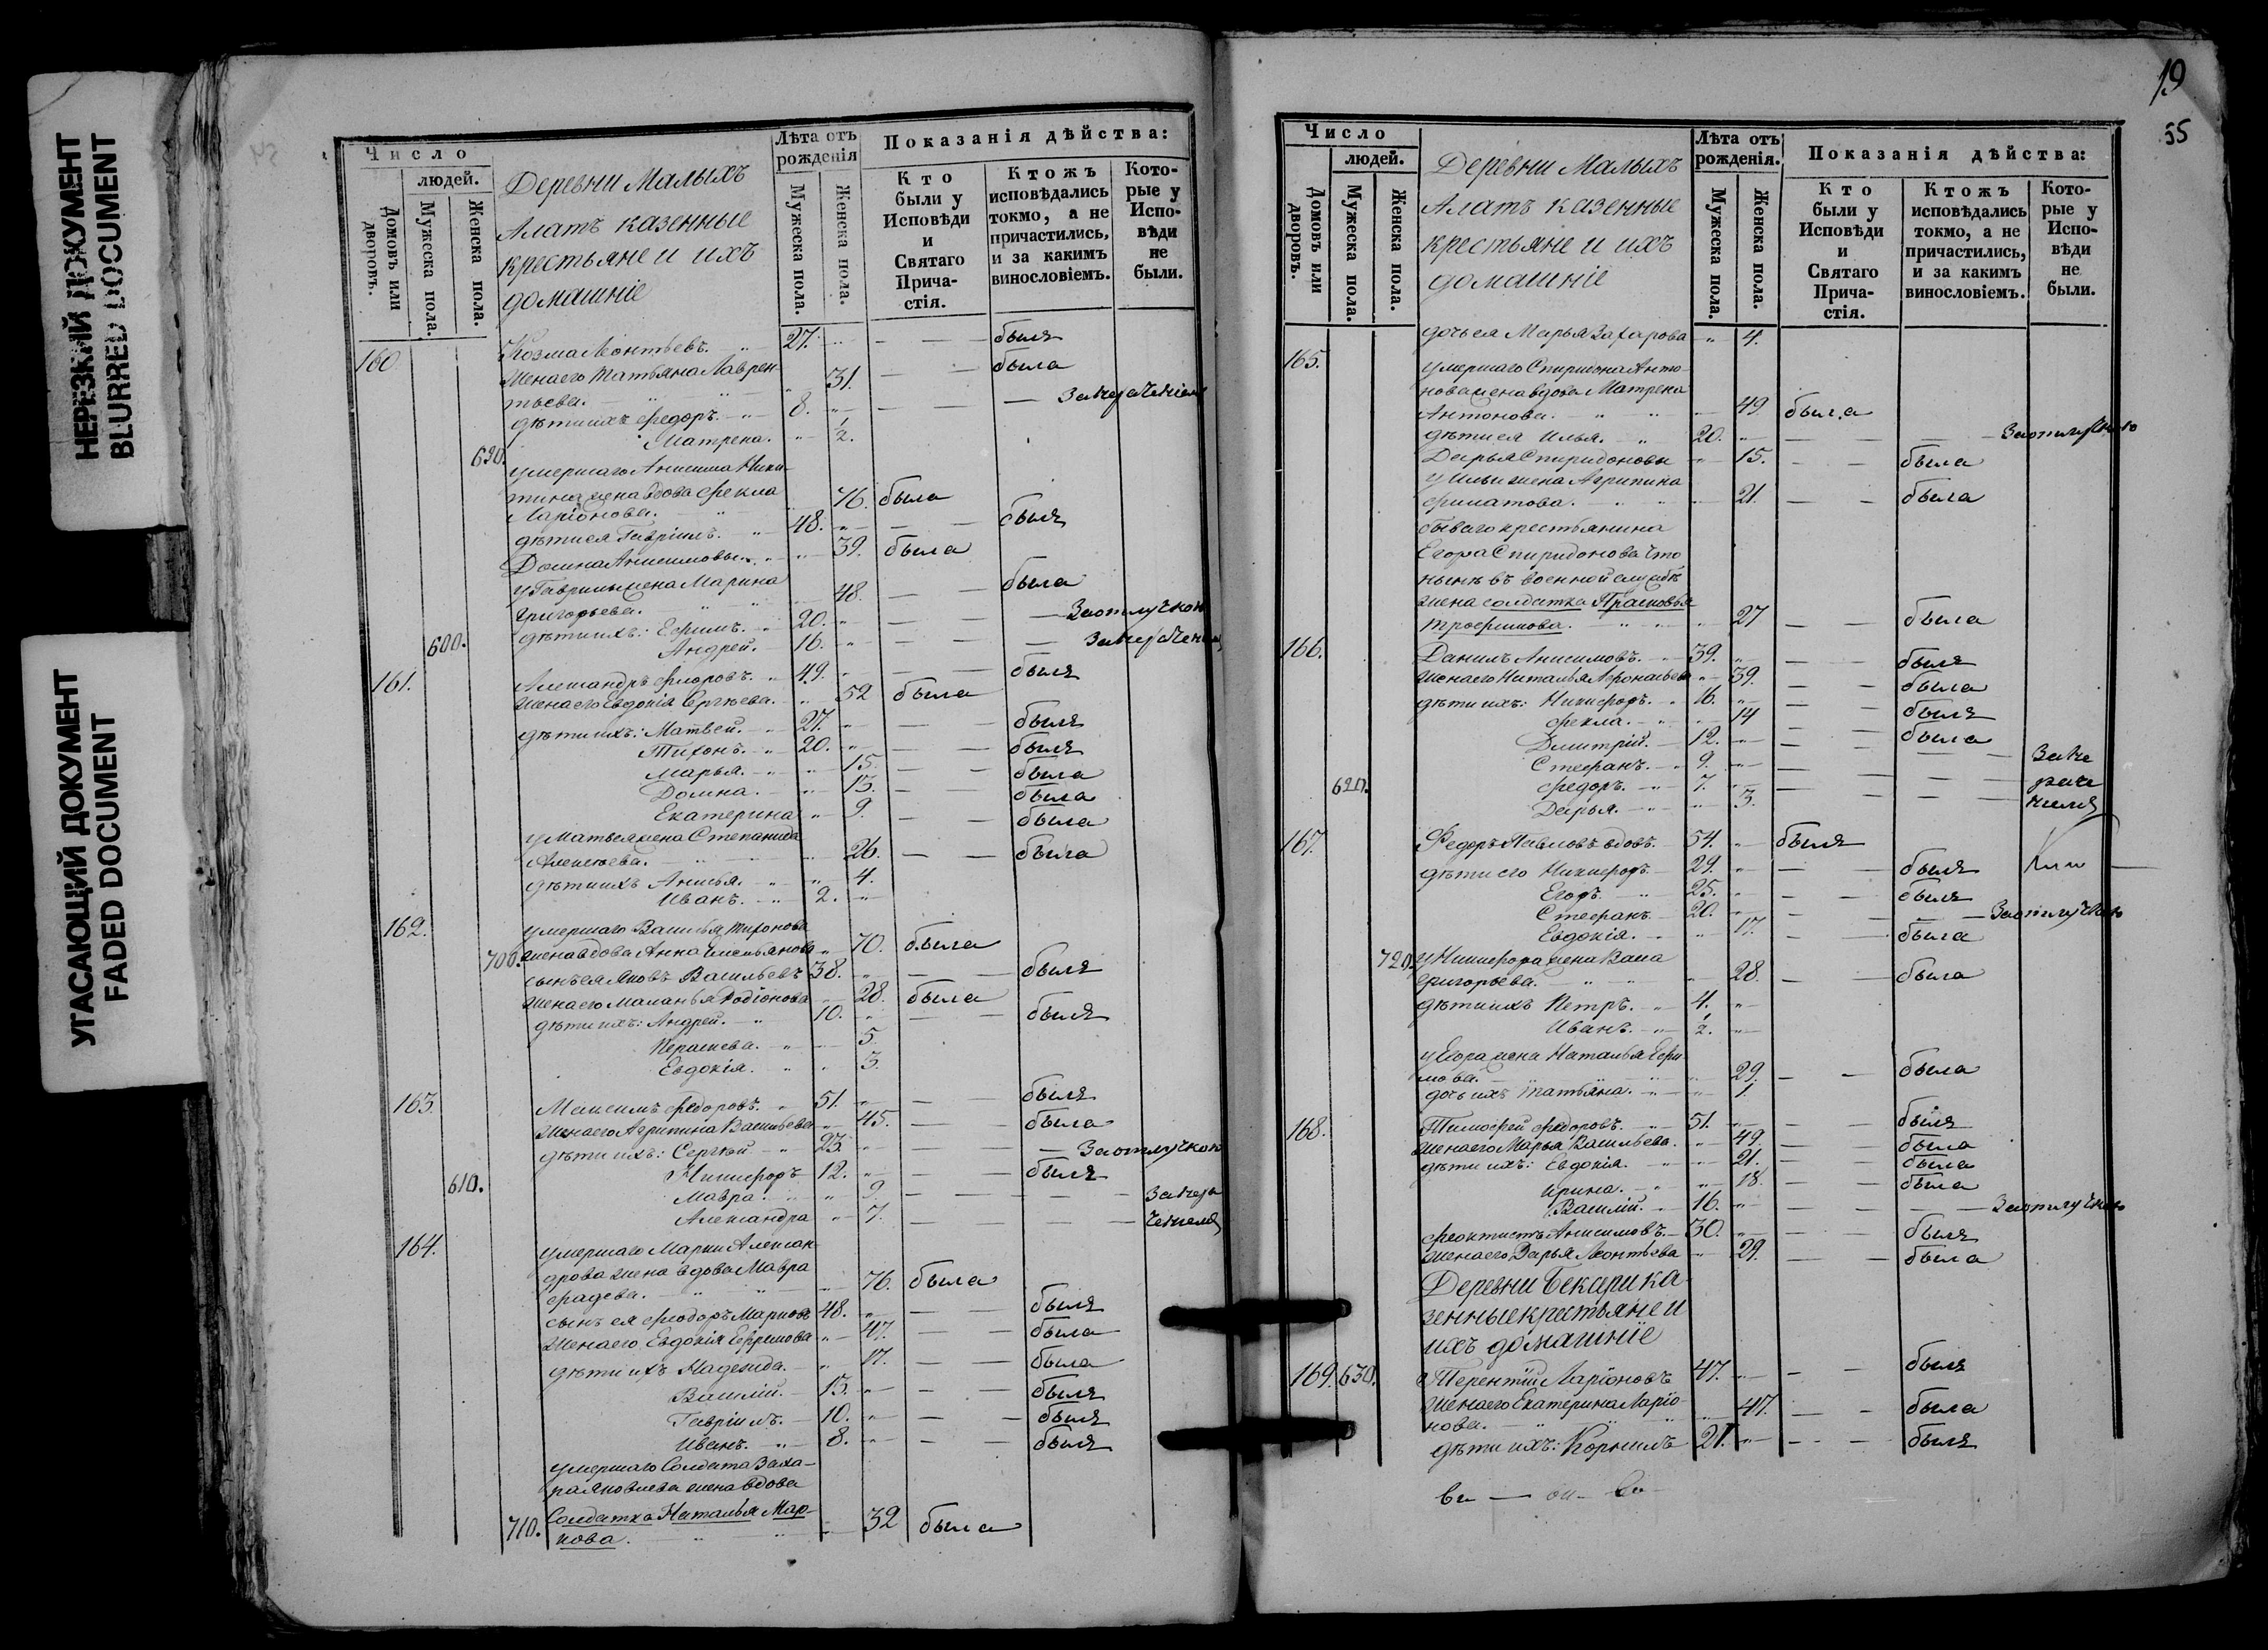 НЕРЕЗКИЙ ДОКУМЕНТ
BLURRED DOCUMENT
УГАСАЮЩИЙ ДОКУМЕНТ
FADED DOCUMENT
Число
людей.
Домовъ или дворовъ.
Мужеска пола.
Женска пола.
Деревни Малыхъ
Алатъ казенные
крестьяне и ихъ
домашніе
Лѣта отъ рожденія
Мужеска пола.
Женска пола.
Показанія дѣйства:
Кто были у Исповѣди и Святаго Причастія.
Ктожъ исповѣдались токмо, а не причастились, и за какимъ винословіемъ.
Которые у Исповѣди не были.
Козма Леонтьевъ. 27. былъ
160. Жена его Татьяна Лаврен-
тьева. 31. была
дѣти ихъ Федоръ. 8.
Матрена. 1/2.
690. умершаго Анисима Ники-
тина жена вдова Фекла
Ларіонова. 76. была
дѣти ея Гавріилъ. 48. былъ
Домна Анисимовы. 39. была
у Гаврилы жена Марина
Григорьева. 48. была
дѣти ихъ: Ефимъ. 20. За отлучкою
600. Андрей. 16.
161. Александръ Федоровъ. 49. былъ
жена его Евдокія Сергѣева. 52 была
дѣти ихъ: Матвей. 27. былъ
Тихонъ. 20. былъ
Марья. 15. была
Домна. 13. была
Екатерина 9. была
у Матвея жена Степанида
Алексѣева. 26. была
дѣти ихъ Анисья. 4.
Иванъ. 2.
162. умершаго Василья Тихонова
700. жена вдова Анна Емельянова 70. была
сынъ ея Яковъ Васильевъ 38. былъ
жена его Маланья Родіонова 28. была
дѣти ихъ: Андрей. 10. былъ
5.
Евдокія. 3.
163. Максимъ Федоровъ. 51. былъ
жена его Агрипина Васильева 45. была
дѣти ихъ: Сергѣй. 23. За отлучкою
610. Никифоръ 12. былъ
Мавра. 9.
Александра 7.
164. умершаго Марки Алексан-
дрова жена вдова Мавра
76. была
сынъ ея Феодоръ Марковъ 48. былъ
жена его Евдокія Ефремова 47. была
дѣти ихъ Надежда. 17. была
Василій. 13. былъ
Гавріилъ. 10. былъ
Иванъ. 8. былъ
умершаго Солдата Заха-
ра Яковлева жена вдова
710. Солдатка Наталья Мар-
кова. 32 была
19
55
Число
людей.
Домовъ или дворовъ.
Мужеска пола.
Женска пола.
Деревни Малыхъ
Алатъ казенные
крестьяне и ихъ
домашніе
Лѣта отъ рожденія.
Мужеска пола.
Женска пола.
Показанія дѣйства:
Кто были у Исповѣди и Святаго Причастія.
Ктожъ исповѣдались токмо, а не причастились, и за какимъ винословіемъ.
Которые у Исповѣди не были.
дочь ея Марья Захарова 4.
165. умершаго Спиридона Анто-
нова жена вдова Матрена
Антонова. 49. была
дѣти ея Илья. 20. За отлучкою
Дарья Спиридоновы 15. была
у Ильи жена Агрипина
21 была
бываго крестьянина
Егора Спиридонова что
нынѣ въ военной службѣ
жена солдатка Прасковья
Трофимова. 27 была
166. Данилъ Анисимовъ. 39. былъ
жена его Наталья 39. была
дѣти ихъ: Никифоръ. 16. былъ
Фекла. 14 была
Дмитрій. 12.
Стефанъ. 9.
620. Федоръ. 7.
Дарья. 3.
167. Федоръ Павловъ вдовъ. 54. былъ
дѣти его Никифоръ 29. былъ
Егоръ. 25. былъ
Стефанъ. 20. За отлучкою
Евдокія. 17. была
720. у Никифора жена Васа
Григорьева. 28. была
дѣти ихъ Петръ. 4.
Иванъ. 1/2.
у Егора жена Наталья Ефи-
мова. 29. была
дочь ихъ Татьяна. 1.
168. Тимофей Федоровъ. 51. былъ
жена его Марья Васильева. 49. была
дѣти ихъ: Евдокія. 21. была
Ирина. 18. была
Василій. 16. За отлучкою
Феоктистъ Анисимовъ. 30. былъ
жена его Дарья Леонтьева 29. была
Деревни Бекари ка-
зенные крестьяне и
ихъ домашніе
169. 630. Терентій Ларіоновъ 47. былъ
жена его Екатерина Ларіо-
нова. 47. была
дѣти ихъ: Корнилъ 21. былъ